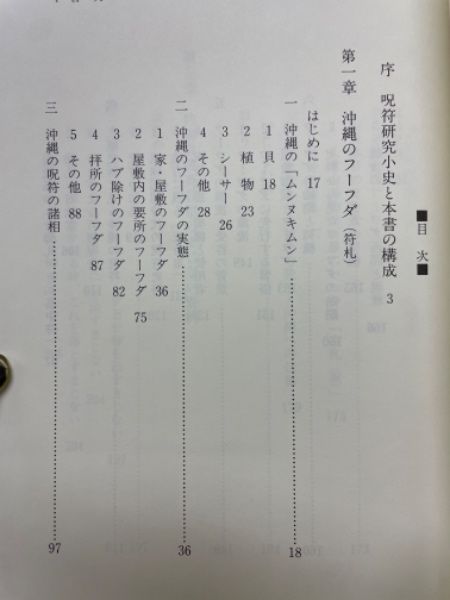 ■目 次■
序 呪符研究小史と本書の構成 3
第一章 沖縄のフーフダ(符札)
はじめに 17
一 沖縄の「ムンヌキムン」……18
1 貝 18
2 植物 23
3 シーサー 26
4 その他 28
二 沖縄のフーフダの実態……36
1 家・屋敷のフーフダ 36
2 屋敷内の要所のフーフダ 75
3 ハブ除けのフーフダ 82
4 拝所のフーフダ 87
5 その他 88
三 沖縄の呪符の諸相……97